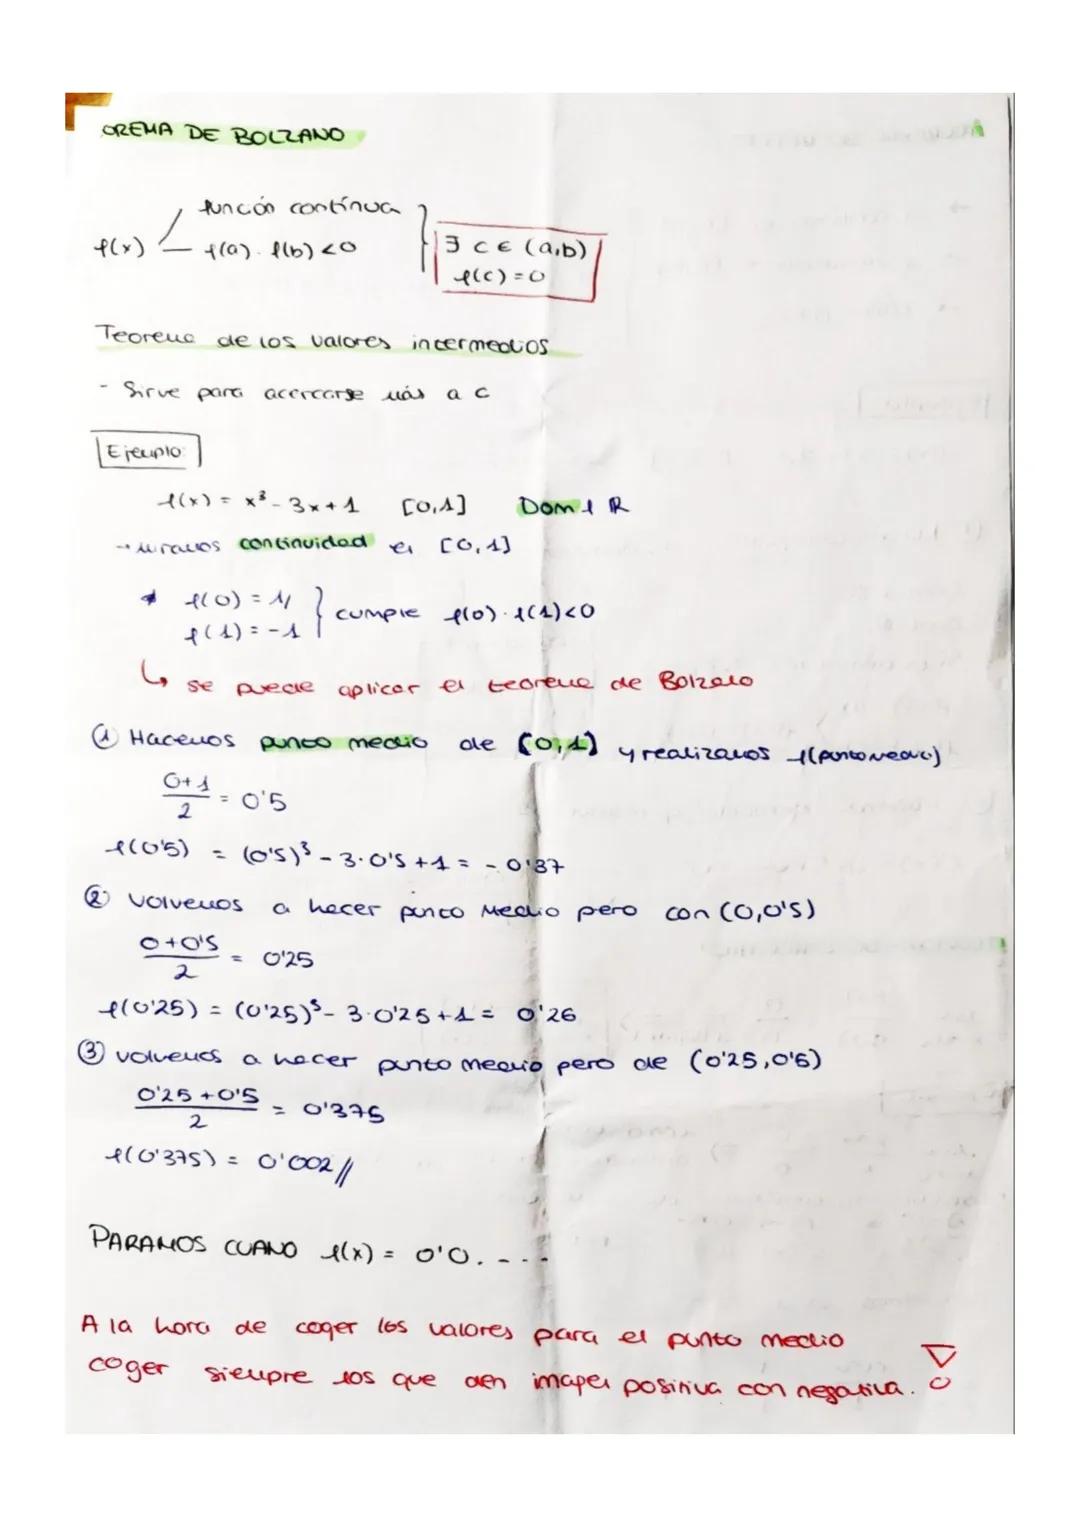 OREMA DE BOLZANO
función contínua
f(x) f(a) · f(b) < 0
∃ c ∈ (a,b)
f(c) = 0
Teorema de los valores intermedios
- Sirve para acercarse más a c
Ejemplo:
f(x) = x³ - 3x + 1 [0,1] Dom f R
→ miramos continuidad en [0,1]
* f(0) = 1//
f(1) = -1
cumple f(0) · f(1) < 0
↳ se puede aplicar el teorema de Bolzano
① Hacemos punto medio de [0,1] y realizamos f(punto medio)
0+1/2 = 0'5
f(0'5) = (0'5)³ - 3·0'5 + 1 = -0'37
② volvemos a hacer punto medio pero con (0,0'5)
0+0'5/2 = 0'25
f(0'25) = (0'25)³ - 3·0'25 + 1 = 0'26
③ volvemos a hacer punto medio pero de (0'25,0'5)
0'25+0'5/2 = 0'375
f(0'375) = 0'002//
PARAMOS CUANO f(x) = 0'0. - - -
A la hora de coger los valores para el punto medio
coger siempre los que den imagen positiva con negativa. !